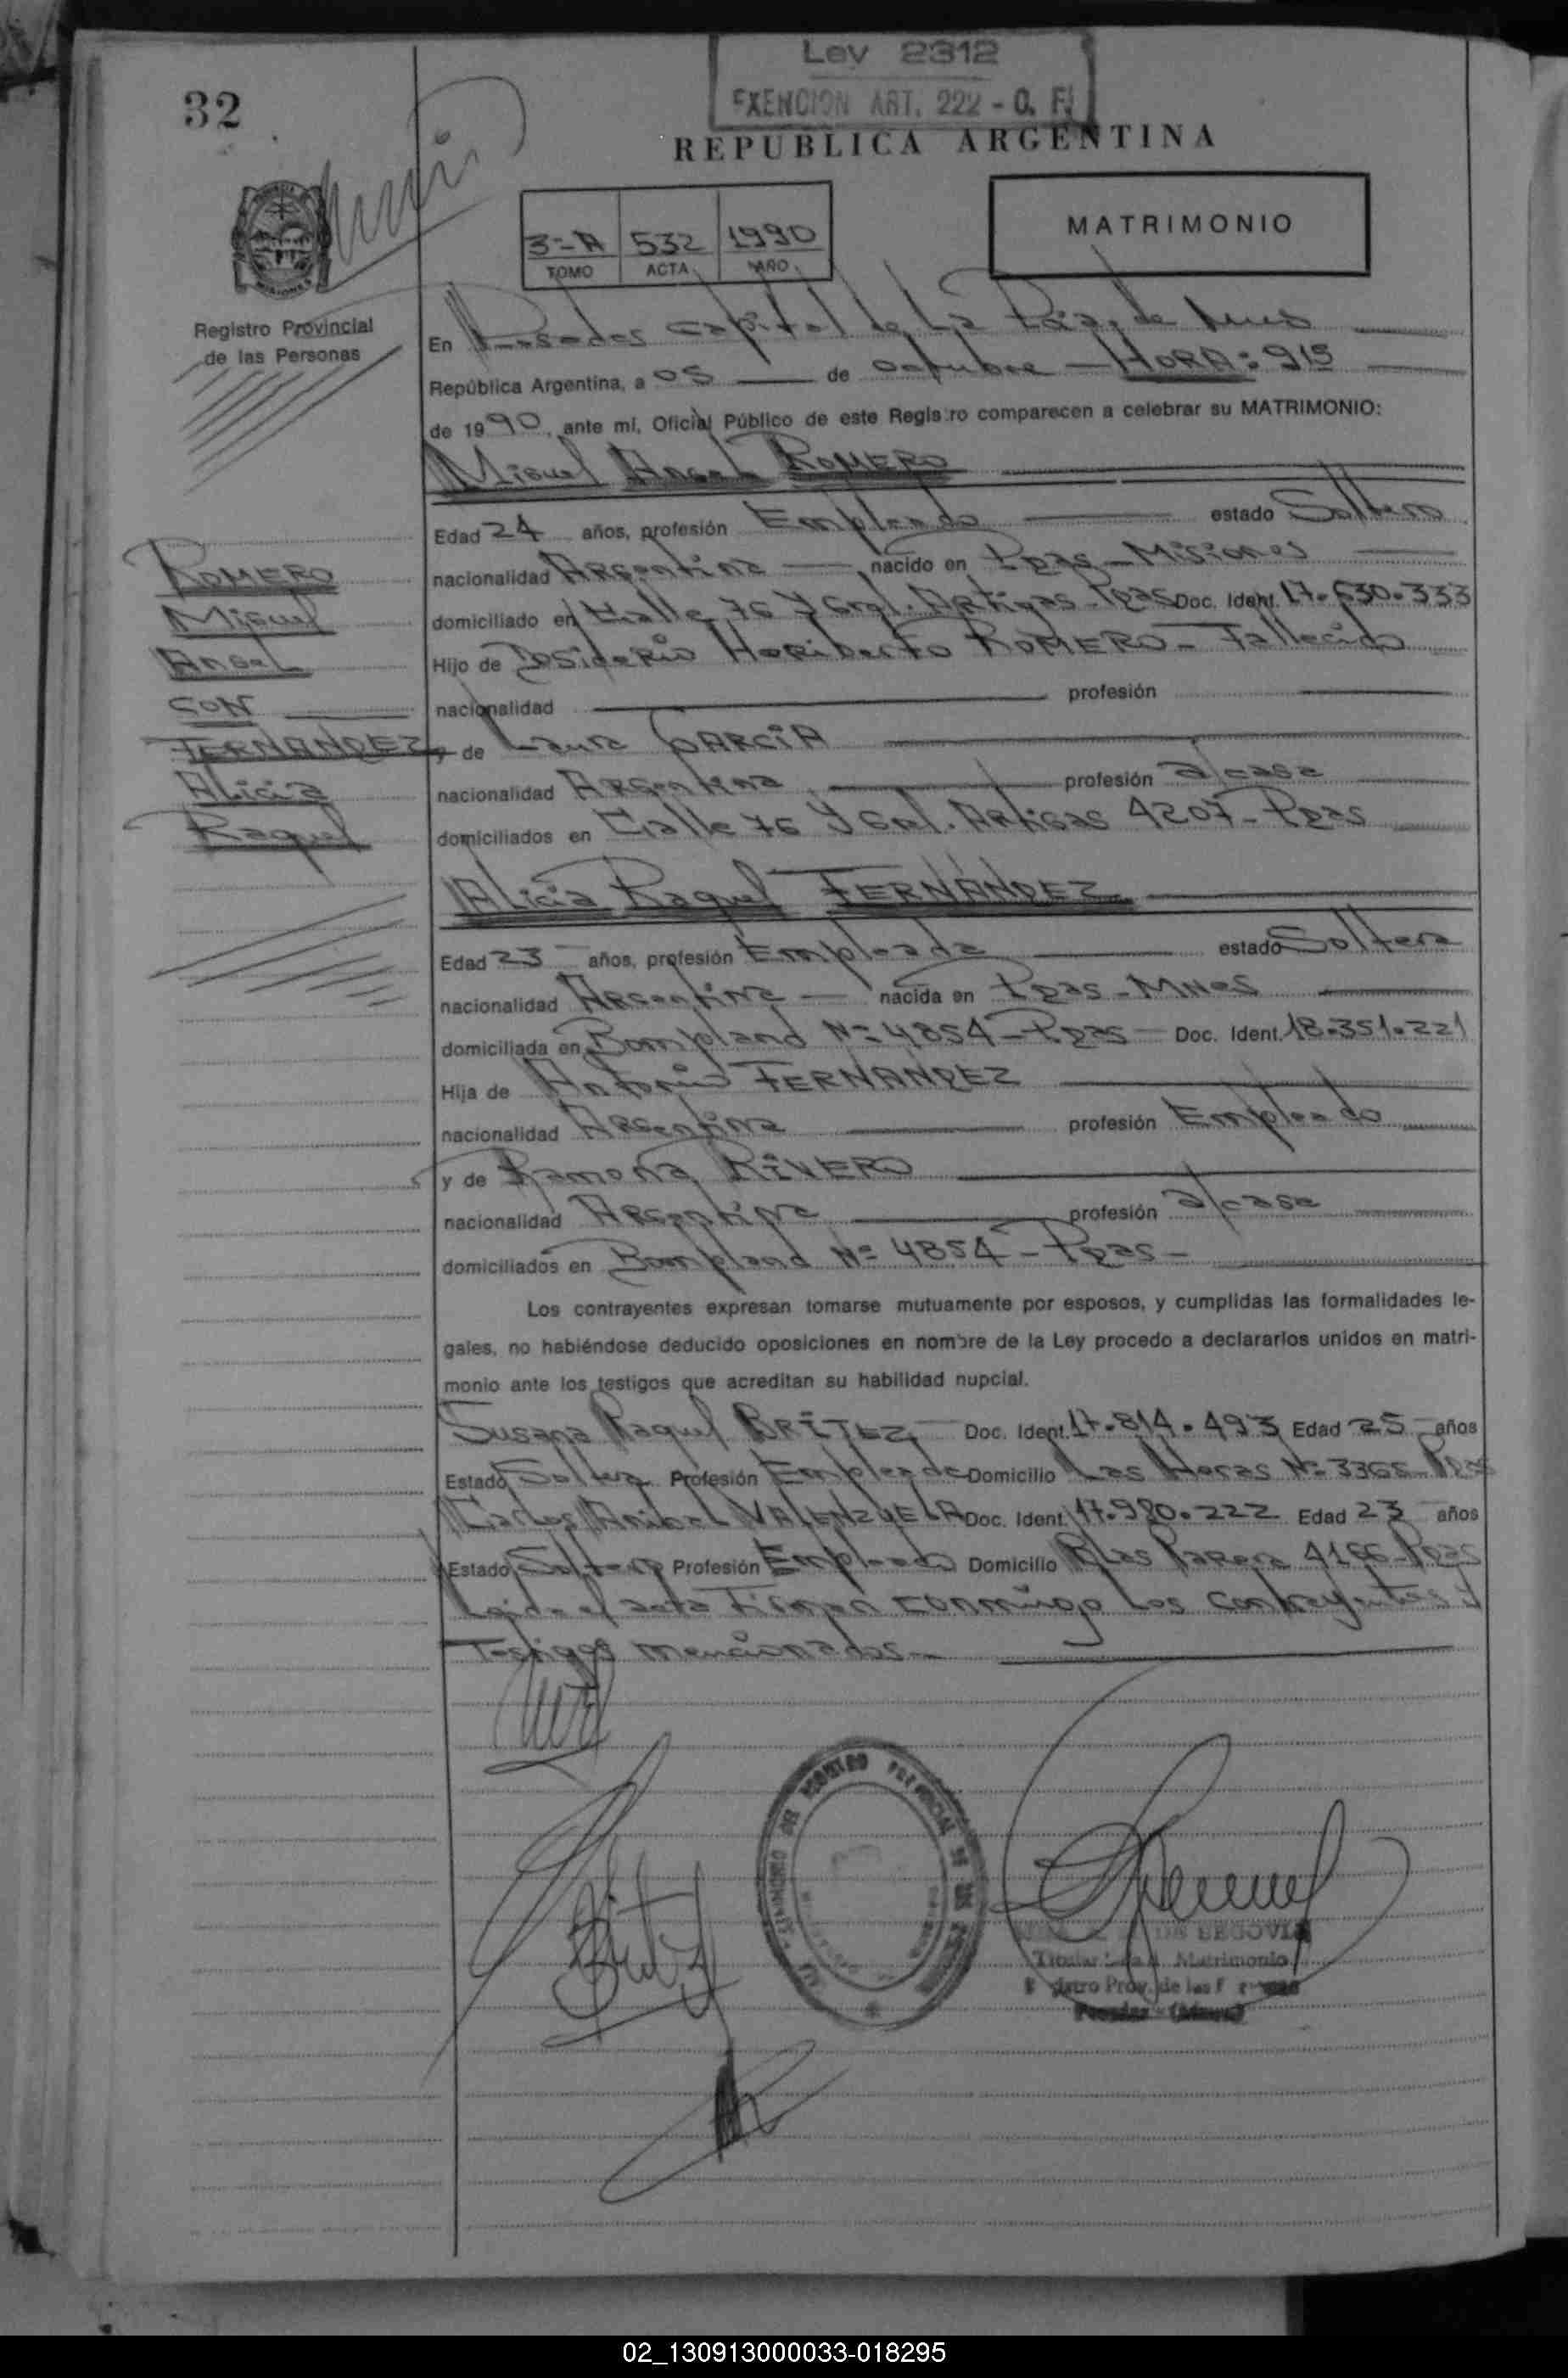 Ley 2312
EXENCION ART. 222 - O. F.
32
REPUBLICA ARGENTINA
MATRIMONIO
3=A 532 1990
TOMO ACTA AÑO
Registro Provincial
de las Personas
En Posadas capital de La Pcia, de Mnes
República Argentina, a 05 de octubre - HORA: 915
de 1990, ante mí, Oficial Público de este Registro comparecen a celebrar su MATRIMONIO:
Miguel Angel ROMERO
Edad 24 años, profesión Empleado estado Soltero
nacionalidad Argentina nacido en Pdas - Misiones
domiciliado en Calle 76 y Gral. Artigas - Pdas Doc. Ident. 17.630.333
Hijo de Desiderio Heriberto ROMERO - Fallecido
nacionalidad profesión
y de Laura GARCIA
nacionalidad Argentina profesión a/casa
domiciliados en Calle 76 y Gral. Artigas 4207 - Pdas
ROMERO
Miguel
Angel
CON
FERNANDEZ
Alicia
Raquel
Alicia Raquel FERNANDEZ
Edad 23 años, profesión Empleada estado Soltera
nacionalidad Argentina nacida en Pdas - Mnes
domiciliada en Bompland Nº 4854 - Pdas - Doc. Ident. 18.351.221
Hija de Antonio FERNANDEZ
nacionalidad Argentina profesión Empleado
y de Ramona RIVERO
nacionalidad Argentina profesión a/casa
domiciliados en Bompland Nº 4854 - Pdas -
Los contrayentes expresan tomarse mutuamente por esposos, y cumplidas las formalidades le-
gales, no habiéndose deducido oposiciones en nombre de la Ley procedo a declararlos unidos en matri-
monio ante los testigos que acreditan su habilidad nupcial.
Susana Raquel BRITEZ - Doc. Ident. 17.814.493 Edad 25 años
Estado Soltera Profesión Empleada Domicilio Las Heras Nº 3365 - Pdas
Carlos Anibal VALENZUELA Doc. Ident. 17.980.222 Edad 23 años
Estado Soltero Profesión Empleado Domicilio Blas Parera 4166 - Pdas
Leida el acta Firman conmigo Los contrayentes y
Testigos mencionados -
DE SEGOVIA
Titular Matrimonio
Prov. de las
Posadas - (Mnes)
02_130913000033-018295